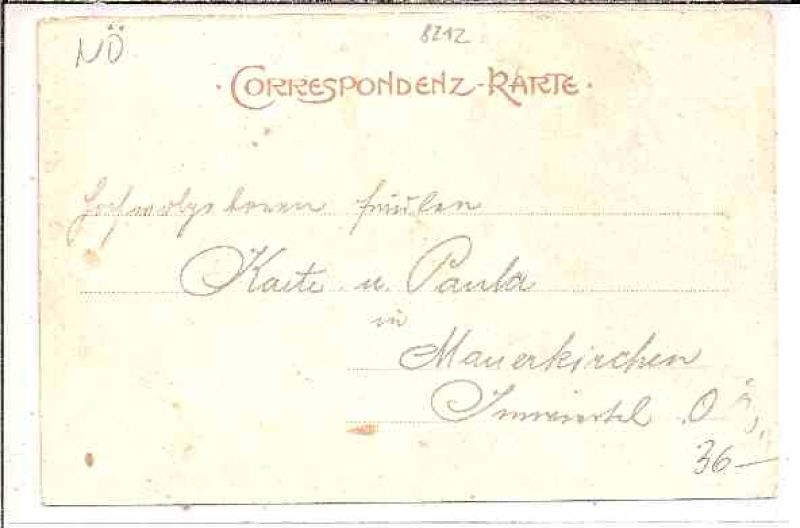 NÖ
8212
· CORRESPONDENZ-KARTE ·
Hochwolgeboren Fräulen
Kaete u. Paula
in
Mauerkirchen
Innviertel O.Ö.
36—